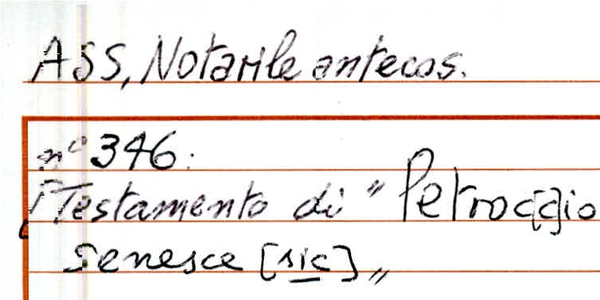 ASS, Notarile antecos.
n° 346:
Testamento di "Petroc[c]io
senesce [sic]„